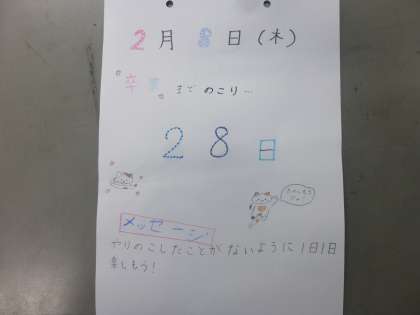 2月8日(木)
卒業までのこり…
28日
メッセージ
やりのこしたことがないように1日1日
楽しもう!